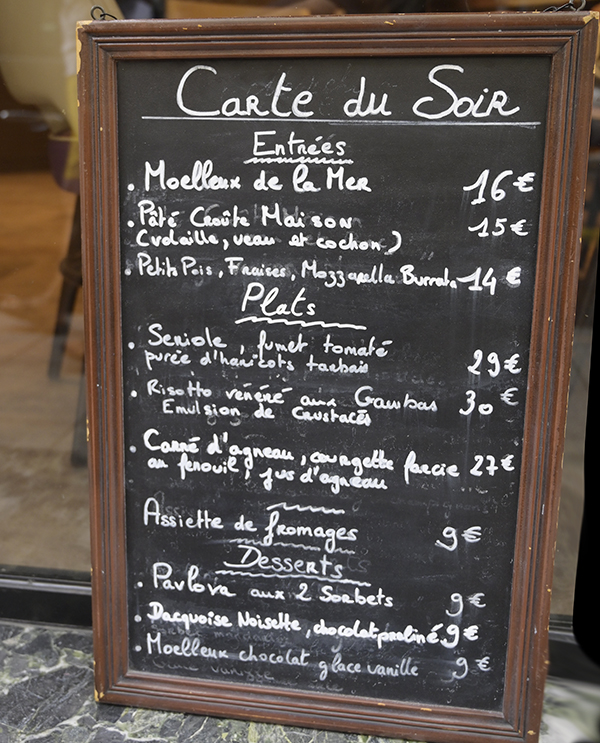 Carte du Soir
Entrées
• Moelleux de la Mer 16€
• Pâté Croûte Maison 15€
(volaille, veau et cochon)
• Petits Pois, Fraises, Mozzarella Burrata 14€
Plats
• Seriole, fumet tomaté
purée d'haricots tarbais 29€
• Risotto vénéré aux Gambas 30€
Emulsion de Crustacés
• Carré d'agneau, courgette farcie 27€
au fenouil, jus d'agneau
Assiette de fromages 9€
Desserts
• Pavlova aux 2 Sorbets 9€
• Dacquoise Noisette, chocolat praliné 9€
• Moelleux chocolat glace vanille 9€